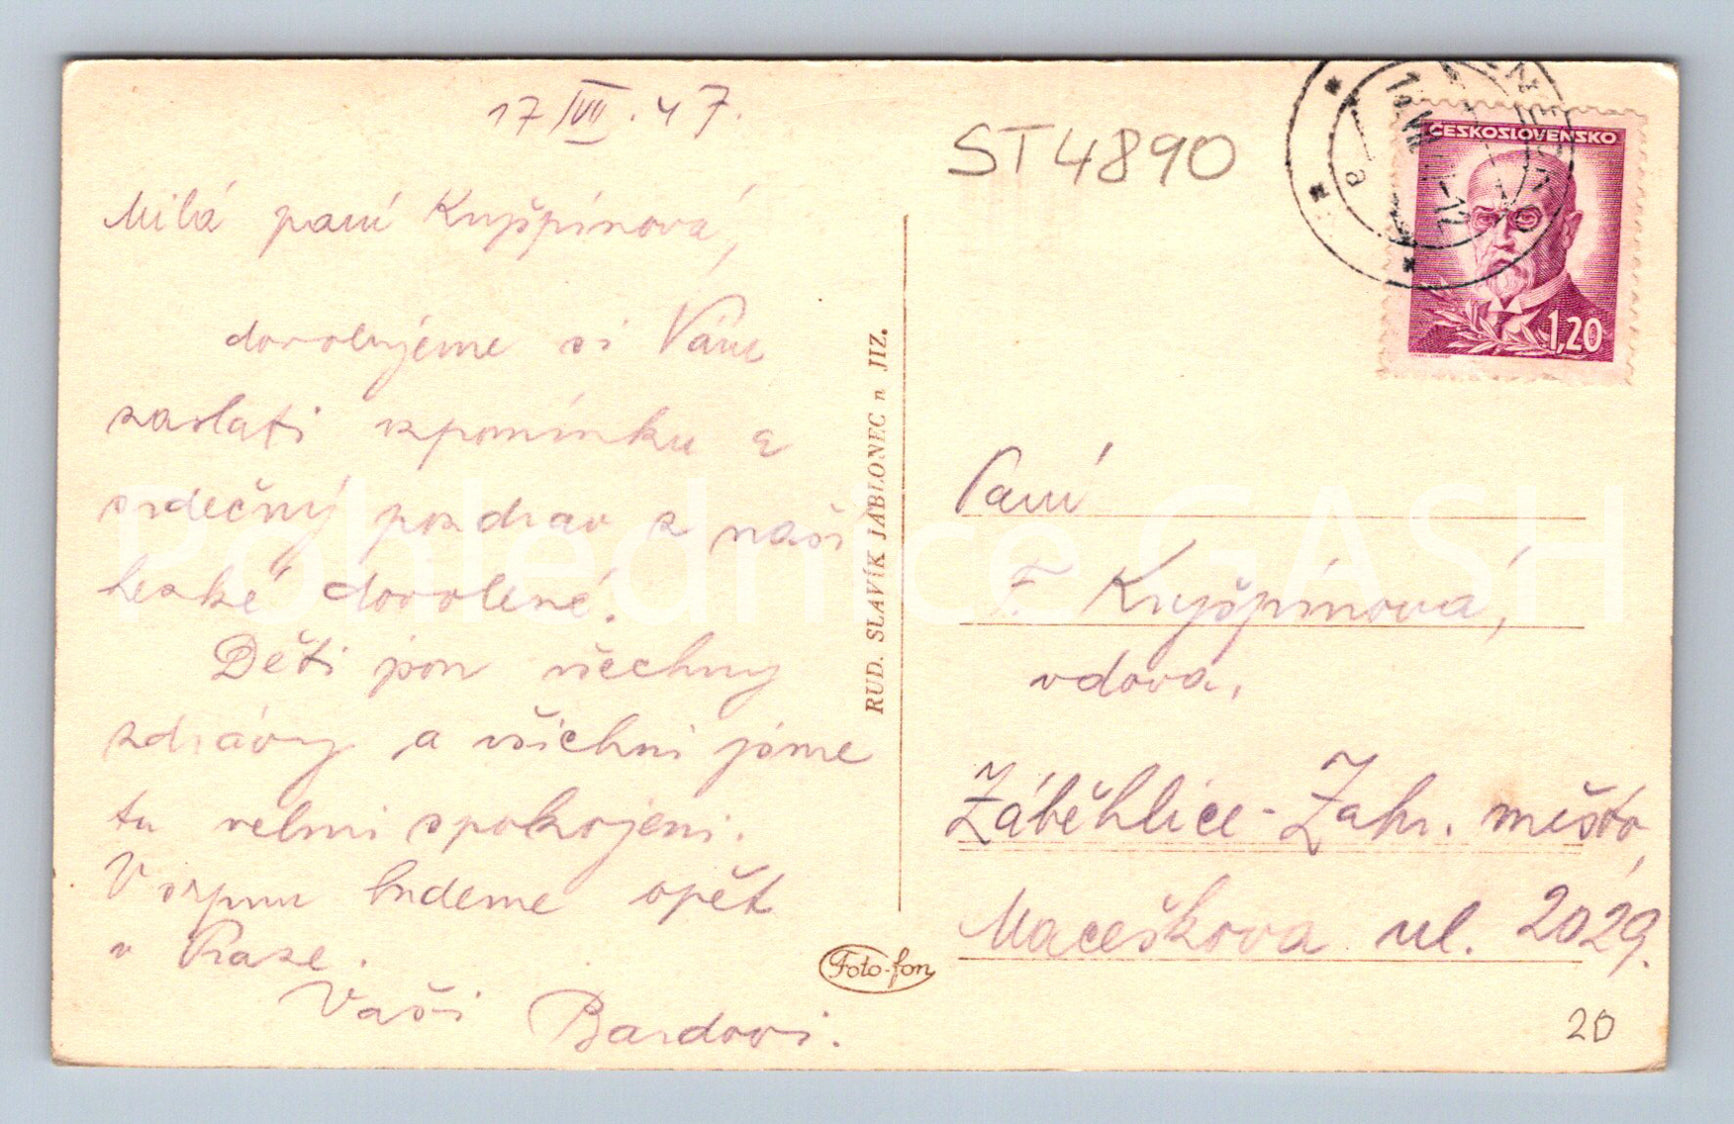 17/VII.47.
Milá paní Kryšpínová,
dovolujeme si Vám
zaslati vzpomínku a
srdečný pozdrav z naší
hezké dovolené.
Děti jsou všechny
zdrávy a všichni jsme
tu velmi spokojeni.
V srpnu budeme opět
v Praze.
Vaši Bardovi.
RUD. SLAVÍK JABLONEC n JIZ.
Foto-fon
ST4890
ČESKOSLOVENSKO
1,20
a
Paní
F. Kryšpínová,
vdova,
Záběhlice-Zahr. město,
Macešková ul. 2029.
20
Pohlednice GASH